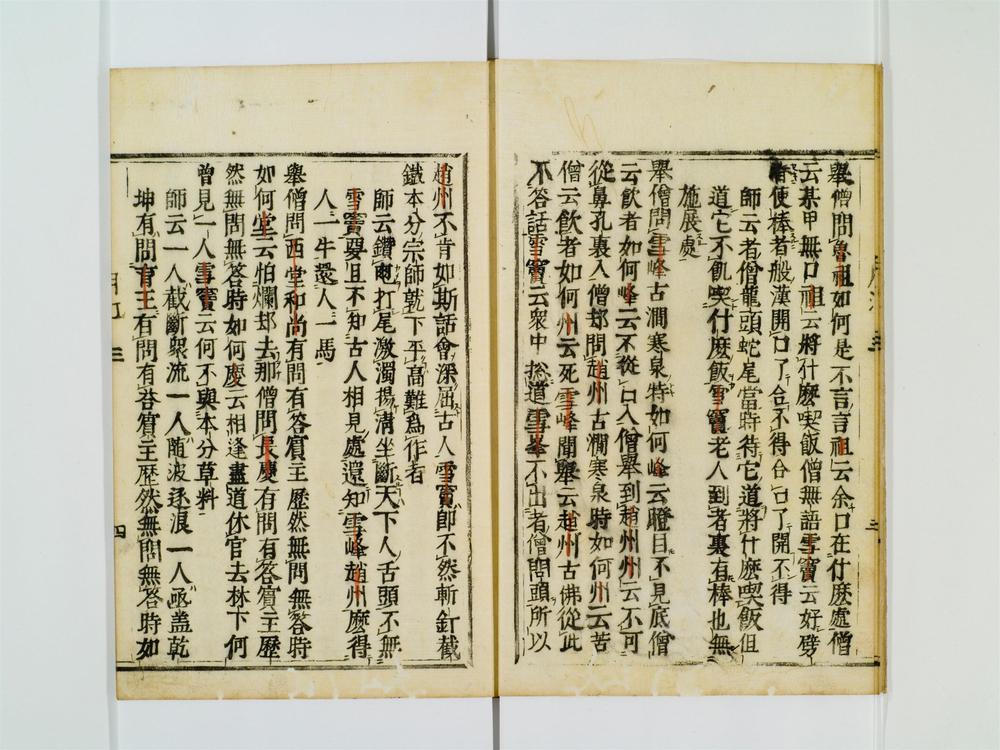 舉僧問魯祖如何是不言言祖云余口在什麽處僧
云某甲無口祖云將什麽喫飯僧無語雪竇云好劈
脊便棒者般漢開口了合不得合口了開不得
師云者僧龍頭蛇尾當時待它道將什麽喫飯但
道它不飢喫什麽飯雪竇老人到者裏有棒也無
施展處
舉僧問雪峰古澗寒泉時如何峰云瞪目不見底僧
云飲者如何峰云不從口入僧舉到趙州州云不可
從鼻孔裏入僧却問趙州古澗寒泉時如何州云苦
僧云飲者如何州云死雪峰聞舉云趙州古佛從此
不答話雪竇云衆中揔道雪峯不出者僧問頭所以
趙州不肯如斯話會深屈古人雪竇即不然斬釘截
鐵本分宗師就下平高難爲作者
師云鑽龜打尾激濁揚清坐斷天下人舌頭不無
雪竇要且不知古人相見處還知雪峰趙州麽得
人一牛還人一馬
舉僧問西堂和尚有問有答賓主歷然無問無答時
如何堂云怕爛却去那僧問長慶有問有答賓主歷
然無問無答時如何慶云相逢盡道休官去林下何
曾見一人雪竇云何不與本分草料
師云一人截斷衆流一人随波逐浪一人凾盖乾
坤有問育王有問有荅賓主歷然無問無荅時如
三
四